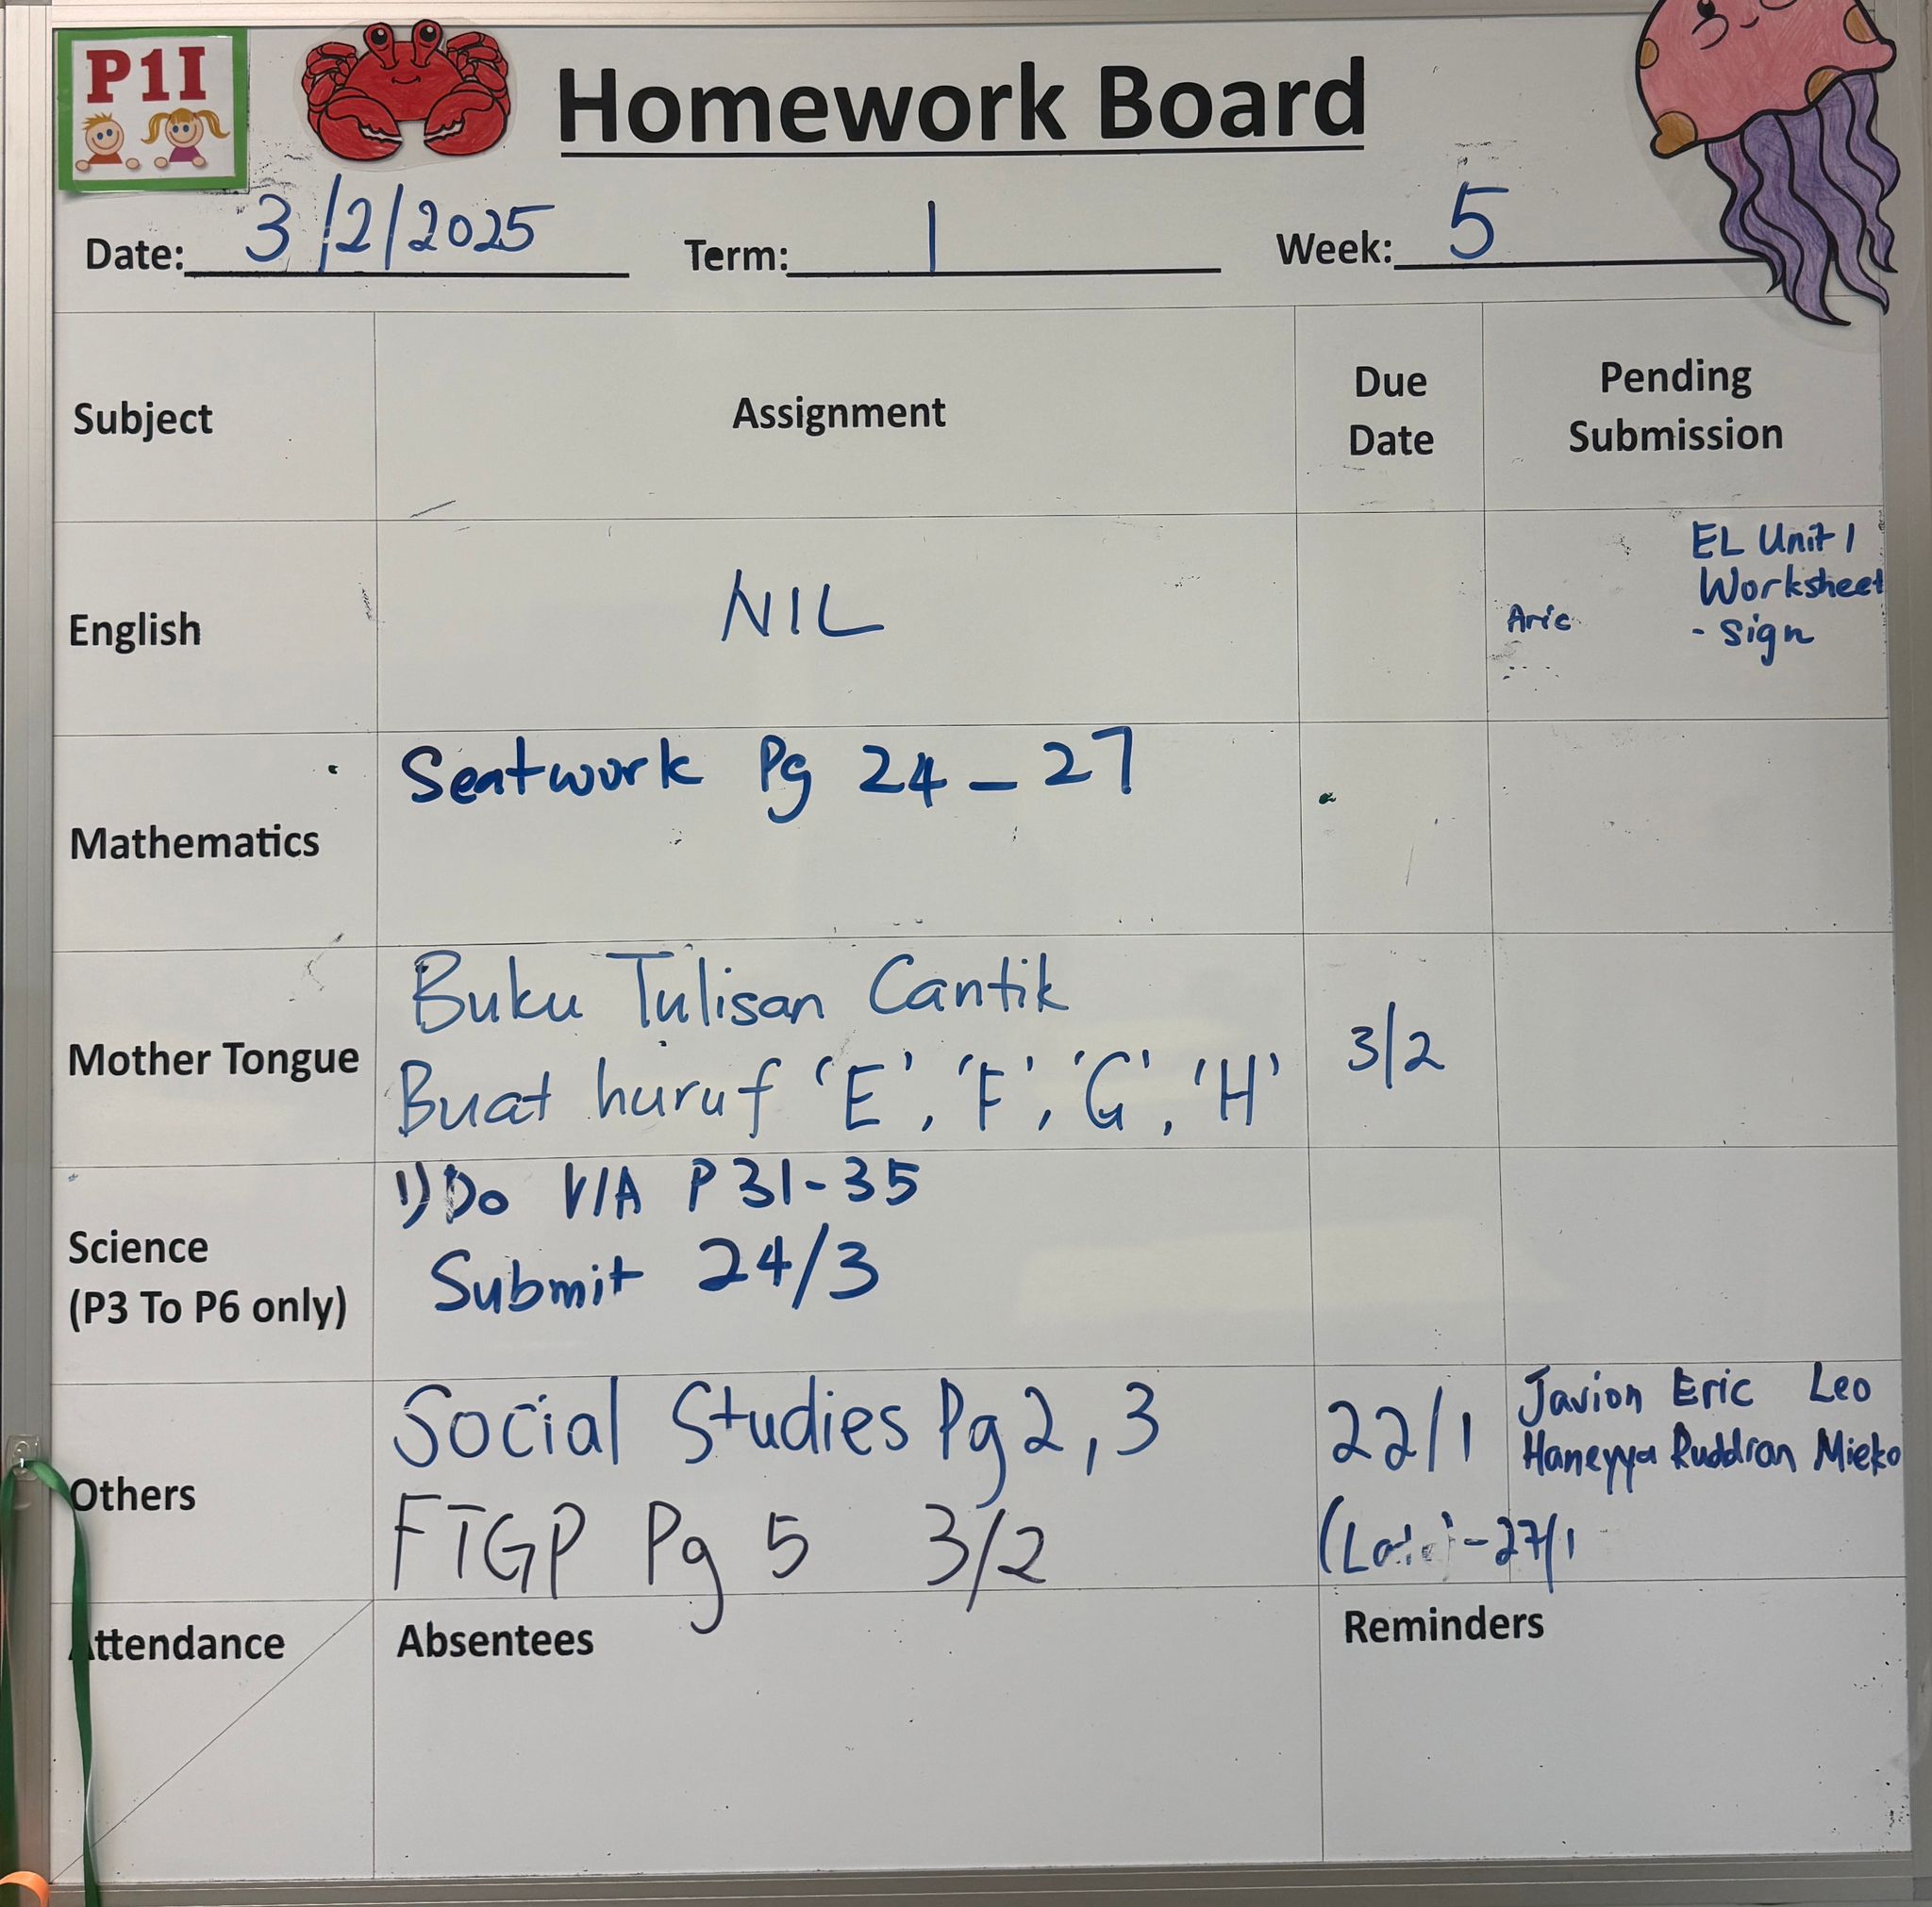 P1I
Homework Board
Date: 3/2/2025 Term: 1 Week: 5
Subject Assignment Due Date Pending Submission
English NIL Aric EL Unit 1 Worksheet - Sign
Mathematics Seatwork Pg 24 - 27
Mother Tongue Buku Tulisan Cantik
Buat huruf 'E', 'F', 'G', 'H' 3/2
Science
(P3 To P6 only)
1) Do V/A P 31-35
Submit 24/3
Others
Social Studies Pg 2, 3 22/1 Javion Eric Leo
Haneyya Ruddran Mieko
FTGP Pg 5 3/2 - 27/1
Attendance Absentees Reminders